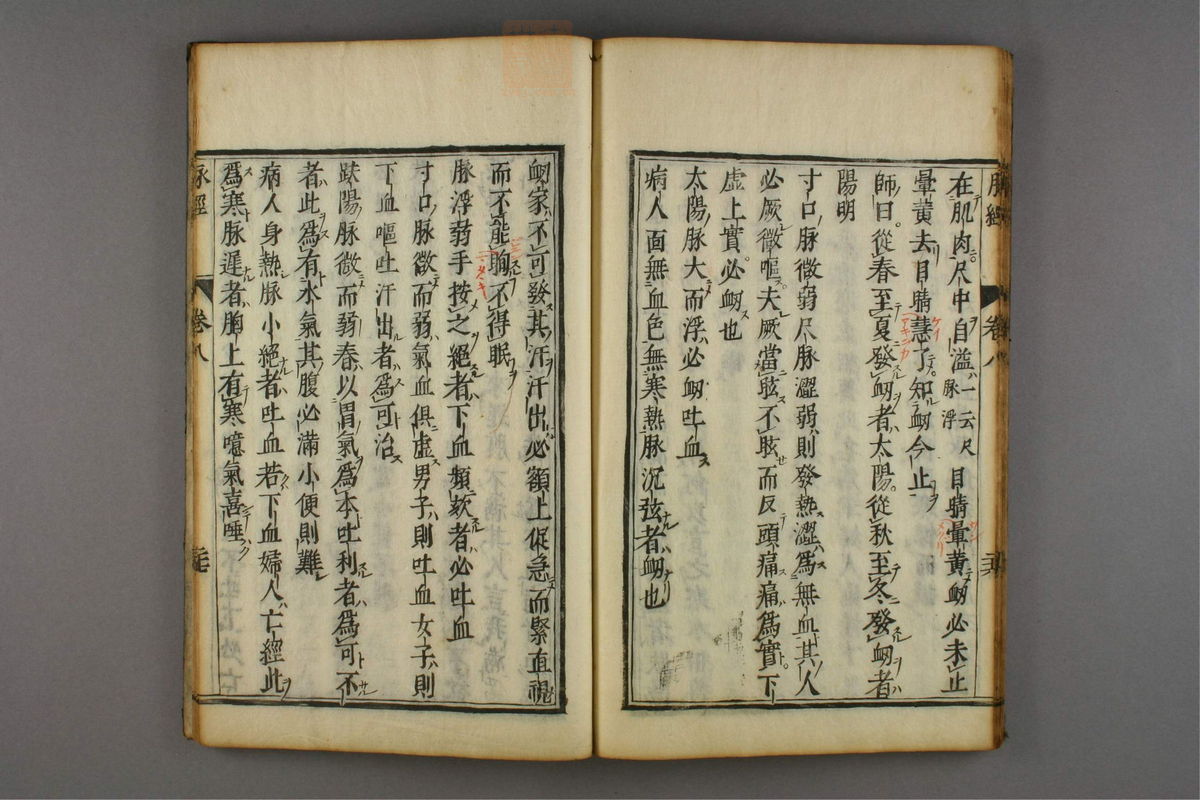 脉經 卷八
在肌肉尺中自溢一云尺脉浮目睛暈黄衂必未止
暈黄去目睛慧了知衂今止
師曰從春至夏發衂者太陽從秋至冬發衂者
陽明
寸口脉微弱尺脉澀弱則發熱澀爲無血其人
必厥微嘔夫厥當眩不眩而反頭痛痛爲實下
虚上實必衂也
太陽脉大而浮必衂吐血
病人面無血色無寒熱脉沉弦者衂也
衂家不可發其汗汗出必額上促急而緊直視
而不能眴不得眠
脉浮弱手按之絕者下血頻欬者必吐血
寸口脉微而弱氣血俱虚男子則吐血女子則
下血嘔吐汗出者爲可治
趺陽脉微而弱春以胃氣爲本吐利者爲可不
者此爲有水氣其腹必滿小便則難
病人身熱脉小絕者吐血若下血婦人亡經此
爲寒脉遲者胸上有寒噫氣喜唾
脉經 卷八